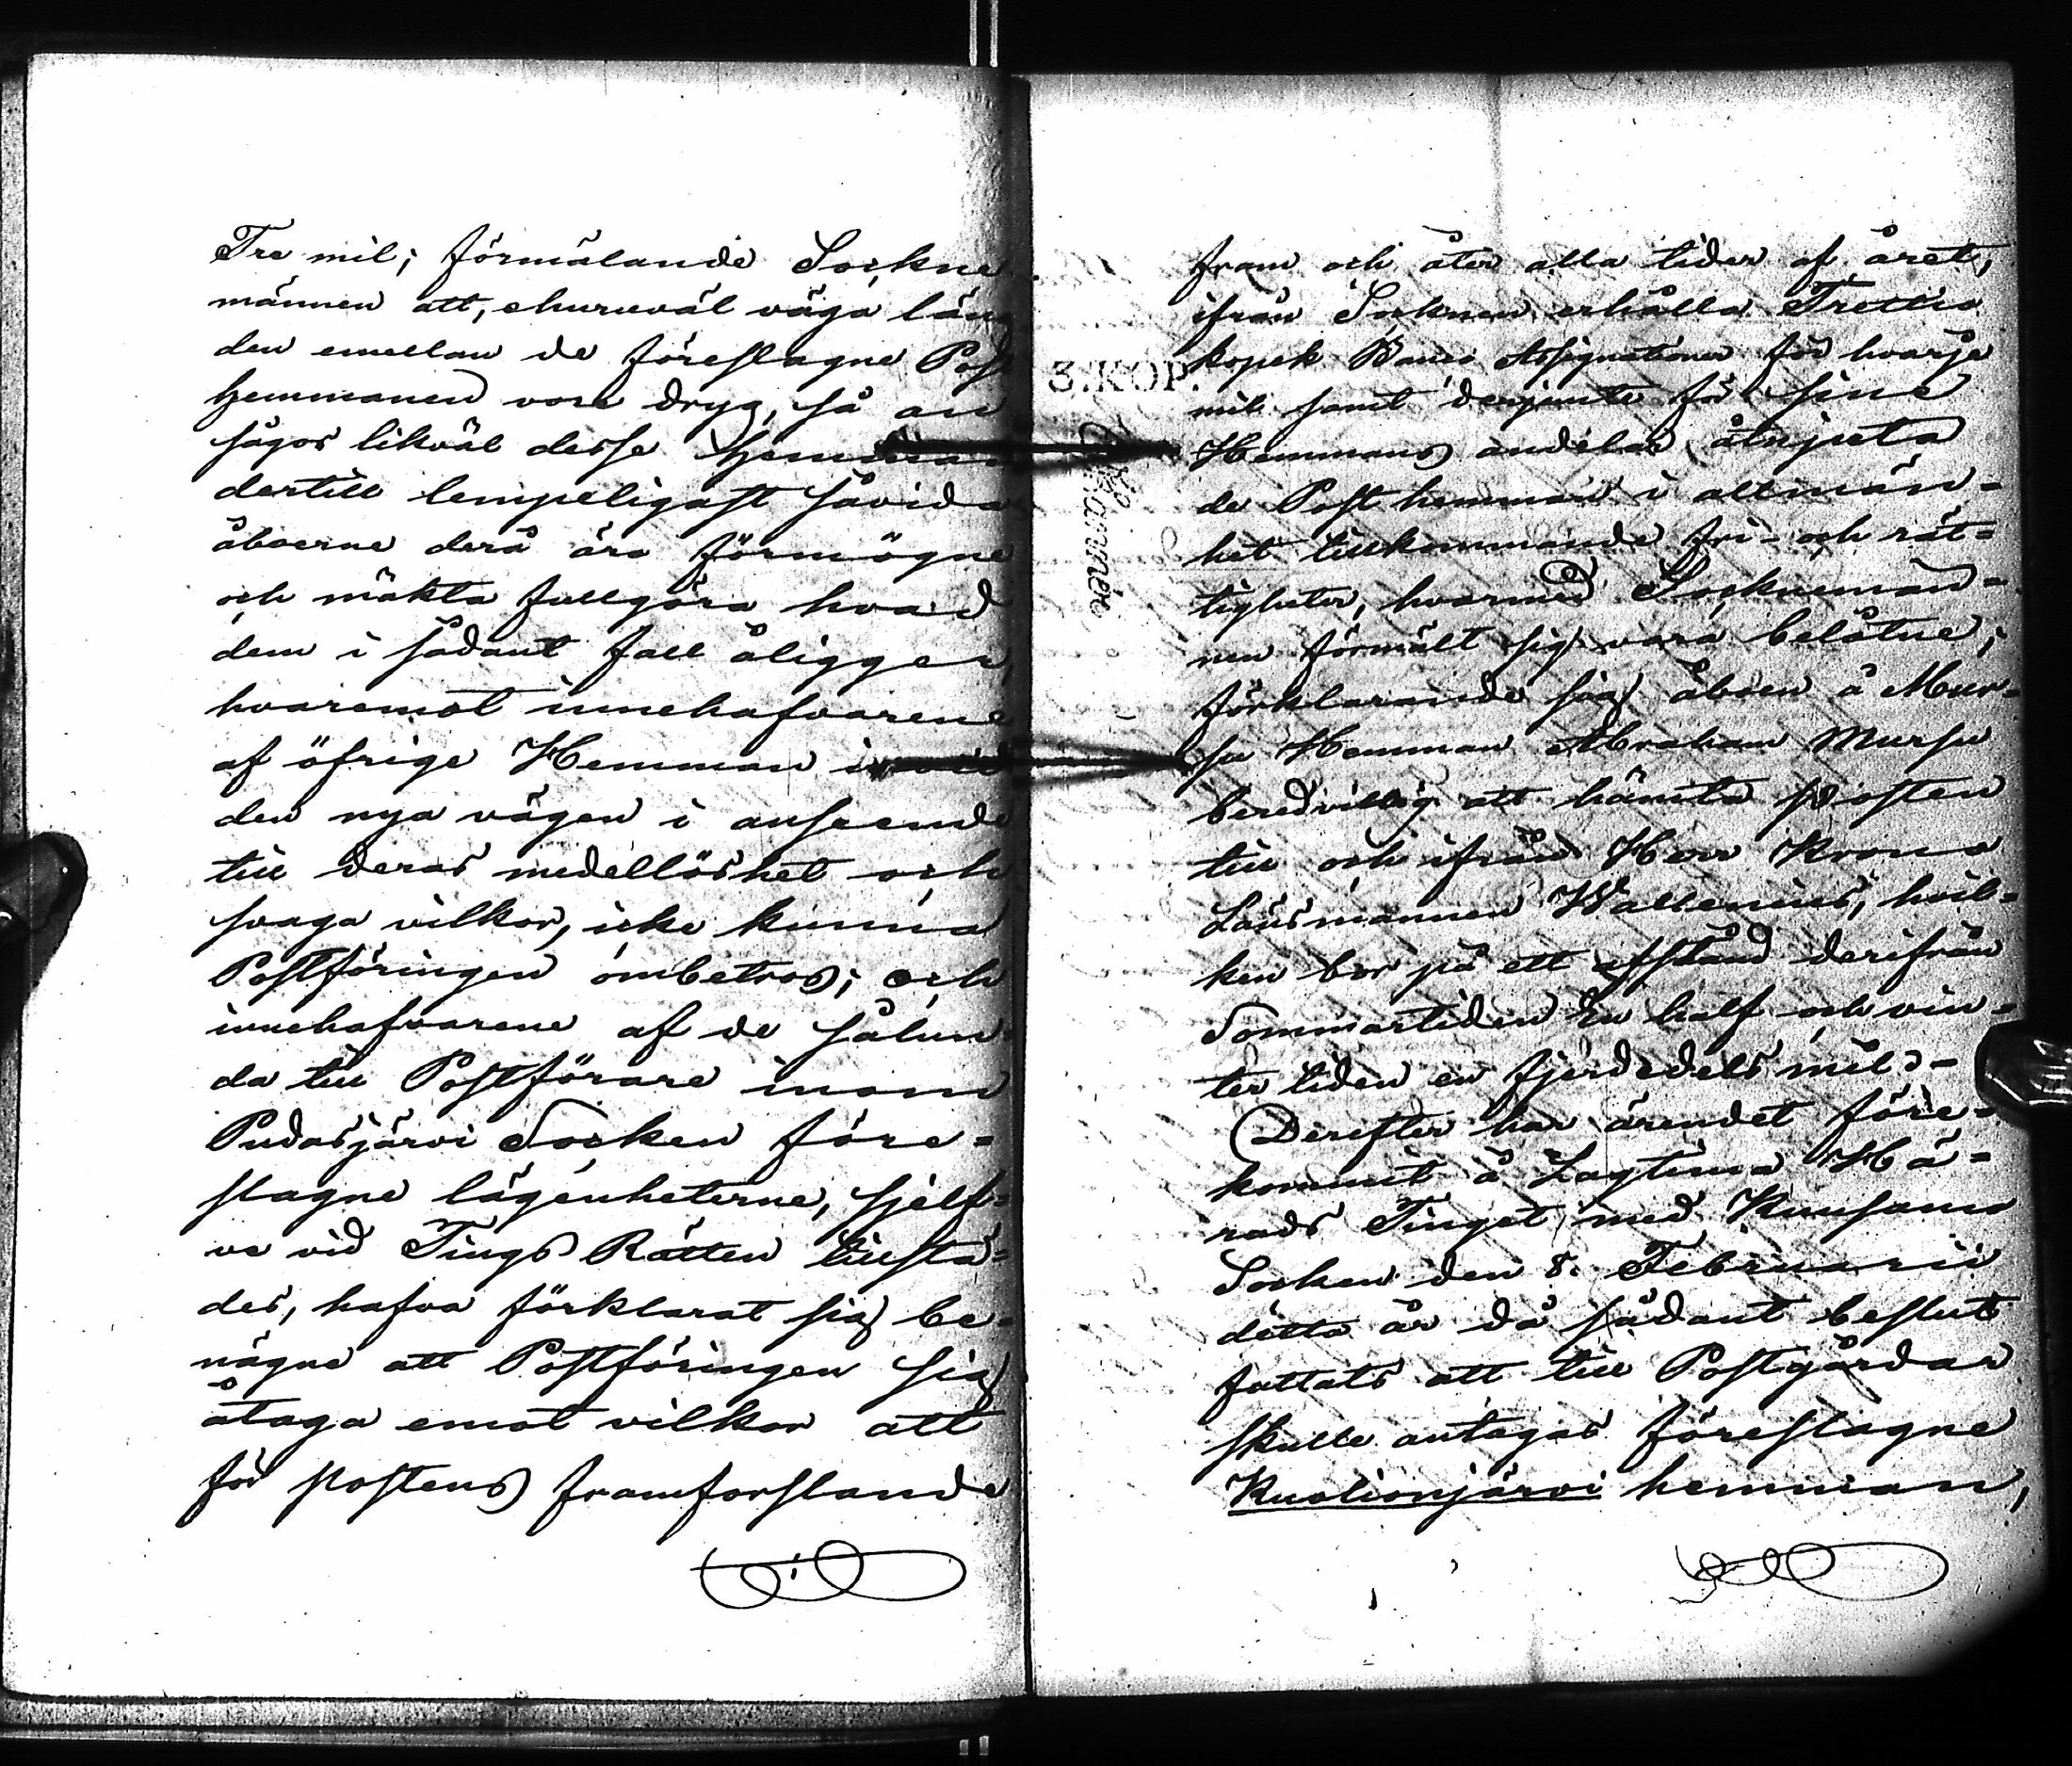 Tre mil; förmälande Sockne
männen att, ehuruväl väga läng
den emellan de föreslagne Post
hemmanen vore dryg, så an
sågos likväl desse Hemman
dertill lempeligast såvida
åboerne derå äro förmögne
och mäkta fullgöra hvad
dem i sådant fall åligger,
hvaremot innehafvarene
af öfrige Hemman invid
den nya vägen i anseende
till deras medellöshet och
svaga vilkor, icke kunna
Postföringen ombetros; och
innehafvarene af de sålun
da till Postförare inom
Pudasjärvi Socken före-
slagne lägenheterne, sjelf-
ve vid Tings Rätten tillstä-
des, hafva förklarat sig be-
nägne att Postföringen sig
åtaga emot vilkor att
för postens framforslande
fram och åter alla tider af året,
ifrån Socknen erhålla Trettio
kopek Banco Assignationer för hvarje
mil samt derjemte för sine
Hemmans andelar åtnjuta
de Post hemman i allmän-
het tillkommande fri- och rät-
tigheter, hvarmed Sockneman-
nen förmält sig vara belåtne;
förklarande sig åboen å Mur-
su Hemman Abraham Mursu
beredvillig att hämta posten
till och ifrån Herr Krono
Länsmannen Wallenius, hvil-
ken bor på ett afstånd derifrån
Sommartiden En half och vin-
ter tiden en fjerdedels mil.-
Derefter har ärendet före-
kommit å Lagtima Hä-
rads Tinget med Kuusamo
Socken den 8. Februarii
detta år då sådant beslut
fattats att till Postgårdar
skulle antagas föreslagne
Kuolionjärvi hemman,
3.KOP.